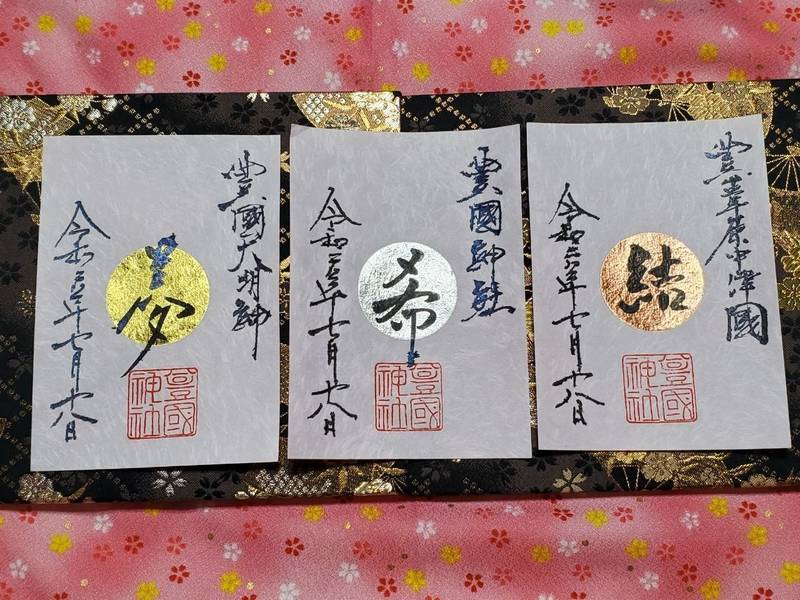 豊葦原中津國
結
豊國
神社
令和六年七月十八日
豊國神社
希
豊國
神社
令和六年七月十八日
豊國大明神
夢
豊國
神社
令和六年七月十八日